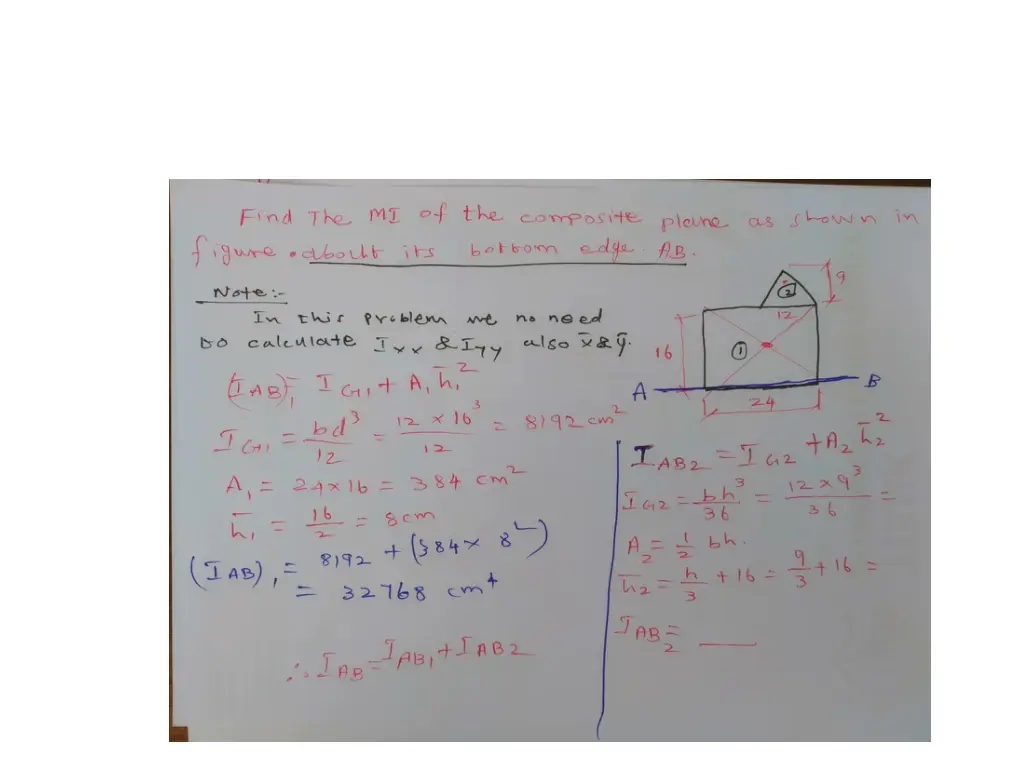 Find The MI of the composite plane as shown in
figure . about its bottom edge AB.
Note:-
In this problem we no need
to calculate Ixx & Iyy also x̄ & ȳ.
(IAB)₁ = IG₁ + A₁ h̄₁²
IG₁ = bd³/12 = 12 × 16³/12 = 8192 cm²
A₁ = 24×16 = 384 cm²
h̄₁ = 16/2 = 8cm
(IAB)₁ = 8192 + (384 × 8²)
= 32768 cm⁴
∴ IAB = IAB₁ + IAB2
9
2
12
16
1
A
B
24
IAB2 = IG2 + A₂ h̄₂²
IG2 = bh³/36 = 12×9³/36 =
A₂ = ½ bh.
h̄₂ = h/3 + 16 = 9/3 + 16 =
IAB₂ = ___